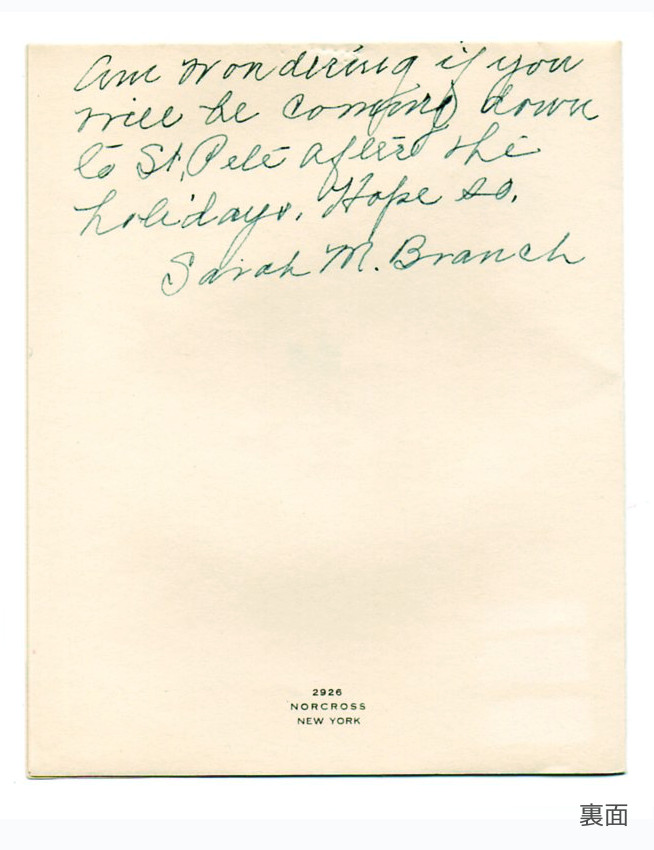 Am wondering if you
will be coming down
to St, Pete after the
holidays. Hope so.
Sarah M. Branch
2926
NORCROSS
NEW YORK
裏面